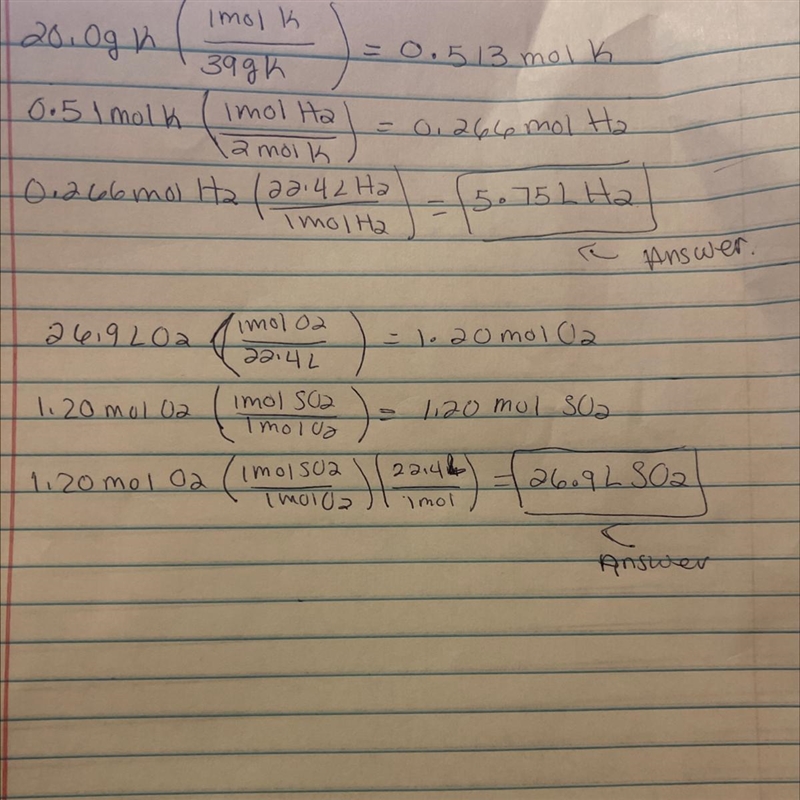 20.0g K (1mol K / 39g K) = 0.513 mol K
0.51molK (1mol H2 / 2 mol K) = 0.266 mol H2
0.266mol H2 (22.4L H2 / 1mol H2) = 5.75L H2
← Answer.
26.9LO2 (1mol O2 / 22.4L) = 1.20molO2
1.20mol O2 (1mol SO2 / 1mol O2) = 1.20 mol SO2
1.20mol O2 (1mol SO2 / 1mol O2)(22.4L / 1mol) = 26.9L SO2
← Answer